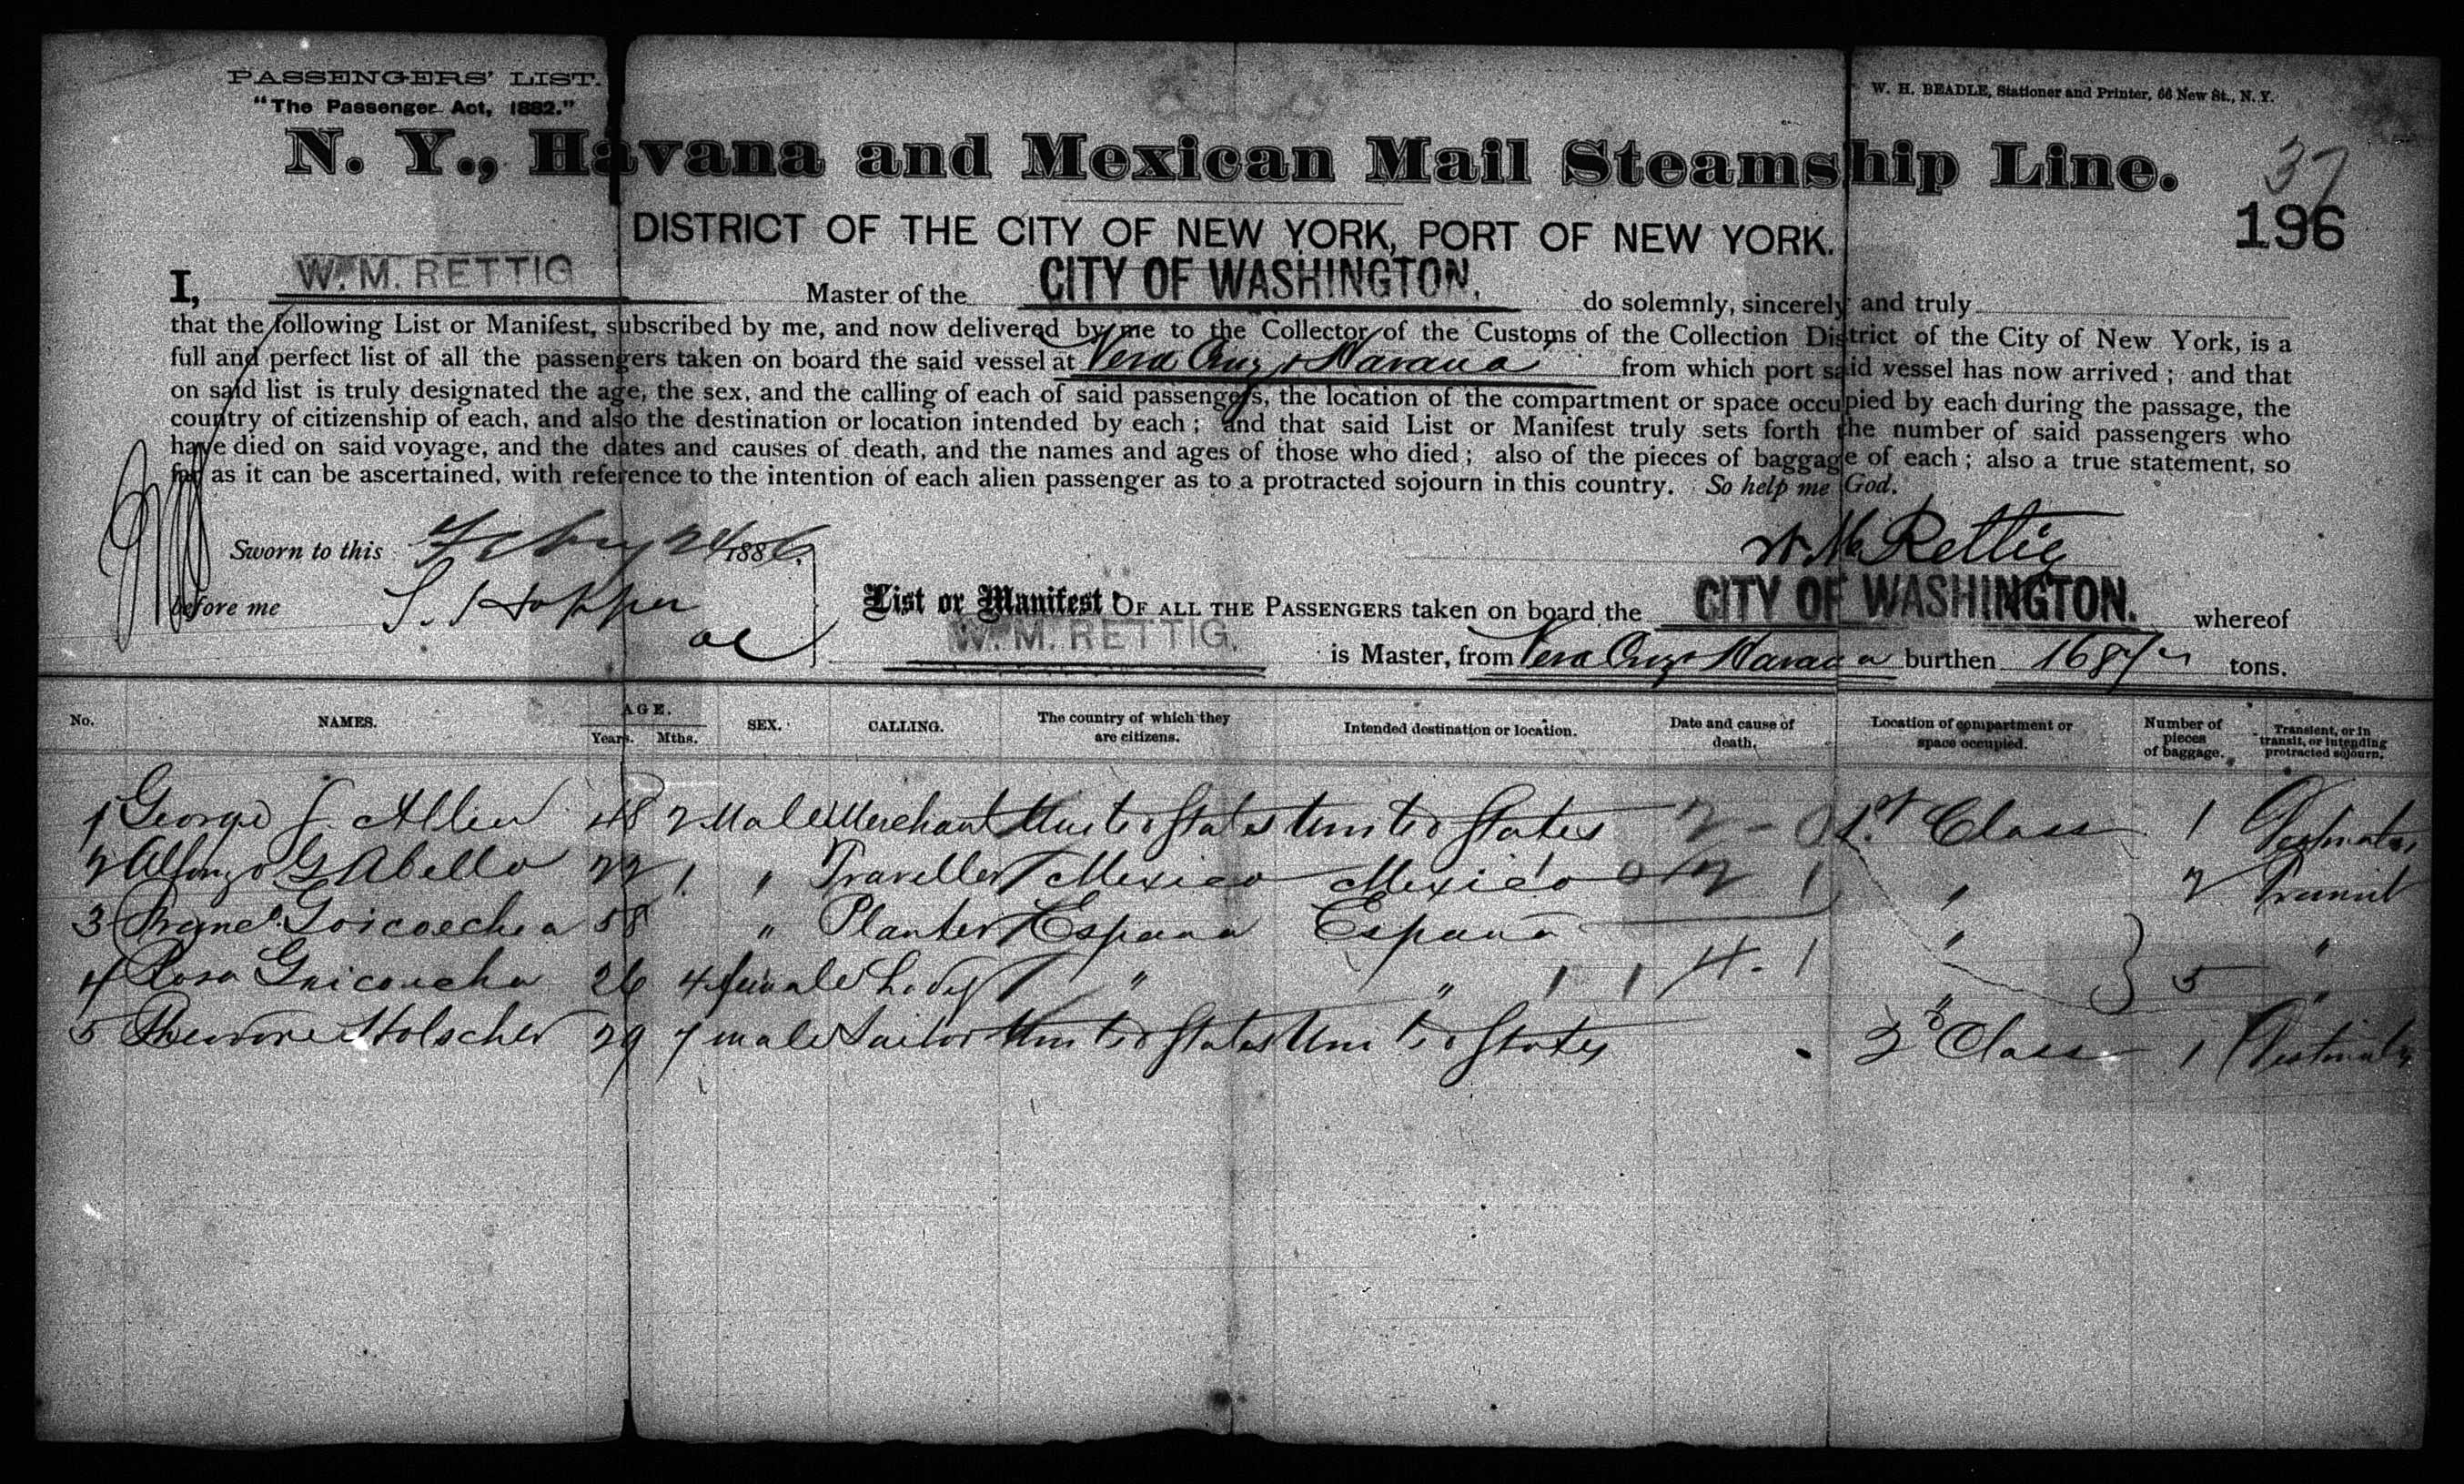 PASSENGERS' LIST.
"The Passenger Act, 1882."
W. H. BEADLE, Stationer and Printer, 66 New St., N. Y.
N. Y., Havana and Mexican Mail Steamship Line.
37
196
DISTRICT OF THE CITY OF NEW YORK, PORT OF NEW YORK.
I, W. M. RETTIG Master of the CITY OF WASHINGTON. do solemnly, sincerely and truly
that the following List or Manifest, subscribed by me, and now delivered by me to the Collector of the Customs of the Collection District of the City of New York, is a
full and perfect list of all the passengers taken on board the said vessel at Vera Cruz & Havana from which port said vessel has now arrived; and that
on said list is truly designated the age, the sex, and the calling of each of said passengers, the location of the compartment or space occupied by each during the passage, the
country of citizenship of each, and also the destination or location intended by each; and that said List or Manifest truly sets forth the number of said passengers who
have died on said voyage, and the dates and causes of death, and the names and ages of those who died; also of the pieces of baggage of each; also a true statement, so
far as it can be ascertained, with reference to the intention of each alien passenger as to a protracted sojourn in this country. So help me God.
Sworn to this Feby 24 1886.
W. M. Rettig
before me S. Hopper
List or Manifest OF ALL THE PASSENGERS taken on board the CITY OF WASHINGTON. whereof
W. M. RETTIG. is Master, from Vera Cruz & Havana burthen tons.
No. NAMES. AGE. Years. Mths. SEX. CALLING. The country of which they are citizens. Intended destination or location. Date and cause of death. Location of compartment or space occupied. Number of pieces of baggage. Transient, or in transit, or intending protracted sojourn.
1 George S. Allen 48 2 Male Merchant United States United States 2 - 0 1st Class 1
2 Alfonzo G Abello 22 1 " Traveller Mexico Mexico " 2 Transit
3 Franco. Goicoechea 58 " Planter Espana Espana " "
4 Rosa Goicoechea 26 4 female Lady " " 4 - 1 " 5 "
5 Theodore Holscher 29 7 male Sailor United States United States 2d Class 1